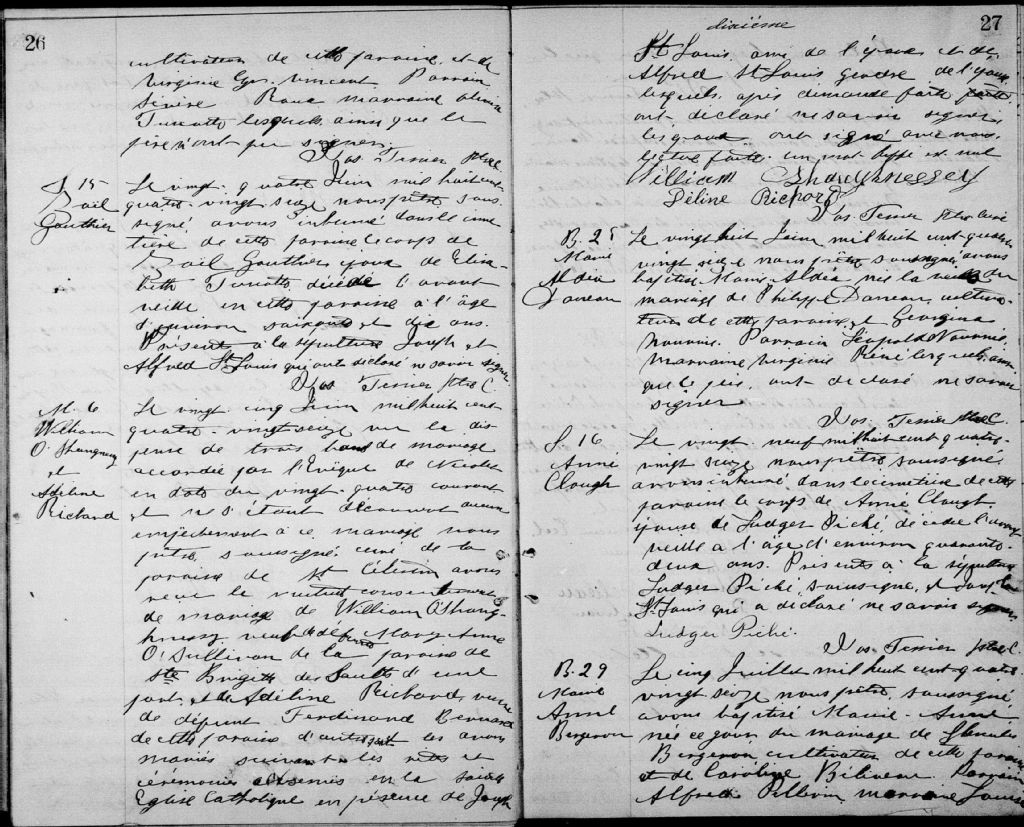 26
cultivateur de cette paroisse, et de
Virginie Vincent Parrain
Sévère Roux marraine
Turcotte lesquels ainsi que le
père n'ont pu signer.
Jos Tessier Ptre C
S 15
Gauthier
Le vingt-quatre Juin mil huit cent
quatre-vingt seize nous prêtre sous-
signé, avons inhumé dans le cime
tière de cette paroisse le corps de
Gauthier époux de Eliza-
beth Turcotte décédé l'avant
veille en cette paroisse à l'âge
d'environ soixante et dix ans.
Présents à la sépulture Joseph et
Alfred St Louis qui ont déclaré ne savoir signer
Jos Tessier Ptre C.
M. 6
William
O'Shaugnessy
et
Adeline
Richard
Le vingt-cinq Juin mil huit cent
quatre-vingt seize vu la dis
pense de trois bans de mariage
accordée par l'Evêque de Nicolet
en date du vingt-quatre courant
et ne s'étant découvert aucun
empêchement à ce mariage nous
prêtre soussigné curé de la
paroisse de St Célestin avons
reçu le mutuel consentement
de mariage de William O'Shaug-
hnessy veuf de défunte Mary Anne
O'Sullivan de la paroisse de
Ste Brigitte des Saults d'une
part, et de Adéline Richard veuve
de défunt Ferdinand Bernard
de cette paroisse d'autre part les avons
mariés suivant les rites et
cérémonies observés en la Sainte
Eglise Catholique en présence de Joseph
27
dixième
St Louis ami de l'époux et de
Alfred St Louis gendre de l'épouse
lesquels, après demande faite
ont déclaré ne savoir signer
les époux ont signé avec nous.
lecture faite. un mot biffé est nul
William Shaughnessey
Déline Richard
Jos Tessier Ptre Curé
B. 28
Marie
Aldia
Daneau
Le vingt huit Juin mil huit cent quatre
vingt seize nous prêtre soussigné avons
baptisé Marie Aldia née la veille du
mariage de Philippe Daneau, cultiva-
teur de cette paroisse et Georgina
Nourrie. Parrain Léopold Nourrie
marraine Virginie René lesquels, ainsi
que le père ont déclaré ne savoir
signer
Jos. Tessier Ptre C.
S. 16
Anné
Clough
Le vingt-neuf mil huit cent quatre-
vingt seize nous prêtre soussigné
avons inhumé dans le cimetière de cette
paroisse le corps de Anné Clough
épouse de Ludger Piché décédée l'avant
veille à l'âge d'environ quarante-
deux ans. Présents à la sépulture
Ludger Piché soussigné, et Joseph
St Louis qui a déclaré ne savoir signer
Ludger Piché.
Jos Tessier Ptre C.
B. 29
Marie
Anne
Bergeron
Le cinq Juillet mil huit cent quatre
vingt seize nous prêtre, soussigné
avons baptisé Marie-Anne
née ce jour du mariage de
Bergeron cultivateur de cette paroisse
et de Caroline Béliveau Parrain
Alfred Pellerin marraine Louise